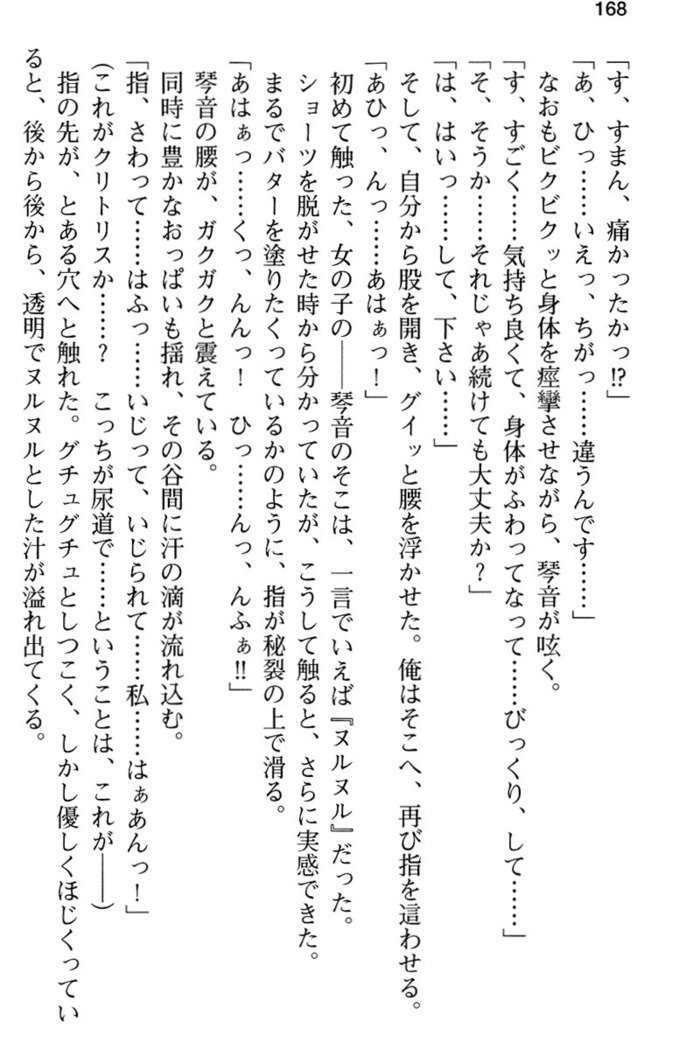 168
「す、すまん、痛かったかっ!?」
「あ、ひっ……いえっ、ちがっ……違うんです……」
なおもビクビクッと身体を痙攣させながら、琴音が呟く。
「す、すごく……気持ち良くて、身体がふわってなって……びっくり、して……」
「そ、そうか……それじゃあ続けても大丈夫か?」
「は、はいっ……して、下さい……」
そして、自分から股を開き、グイッと腰を浮かせた。俺はそこへ、再び指を這わせる。
「あひっ、んっ……あはぁっ!」
初めて触った、女の子の――琴音のそこは、一言でいえば『ヌルヌル』だった。
ショーツを脱がせた時から分かっていたが、こうして触ると、さらに実感できた。
まるでバターを塗りたくっているかのように、指が秘裂の上で滑る。
「あはぁっ……くっ、んんっ! ひっ……んっ、んふぁ!!」
琴音の腰が、ガクガクと震えている。
同時に豊かなおっぱいも揺れ、その谷間に汗の滴が流れ込む。
「指、さわって……はふっ……いじって、いじられて……私……はぁあんっ!」
(これがクリトリスか……? こっちが尿道で……ということは、これが――)
指の先が、とある穴へと触れた。グチュグチュとしつこく、しかし優しくほじくってい
ると、後から後から、透明でヌルヌルとした汁が溢れ出てくる。